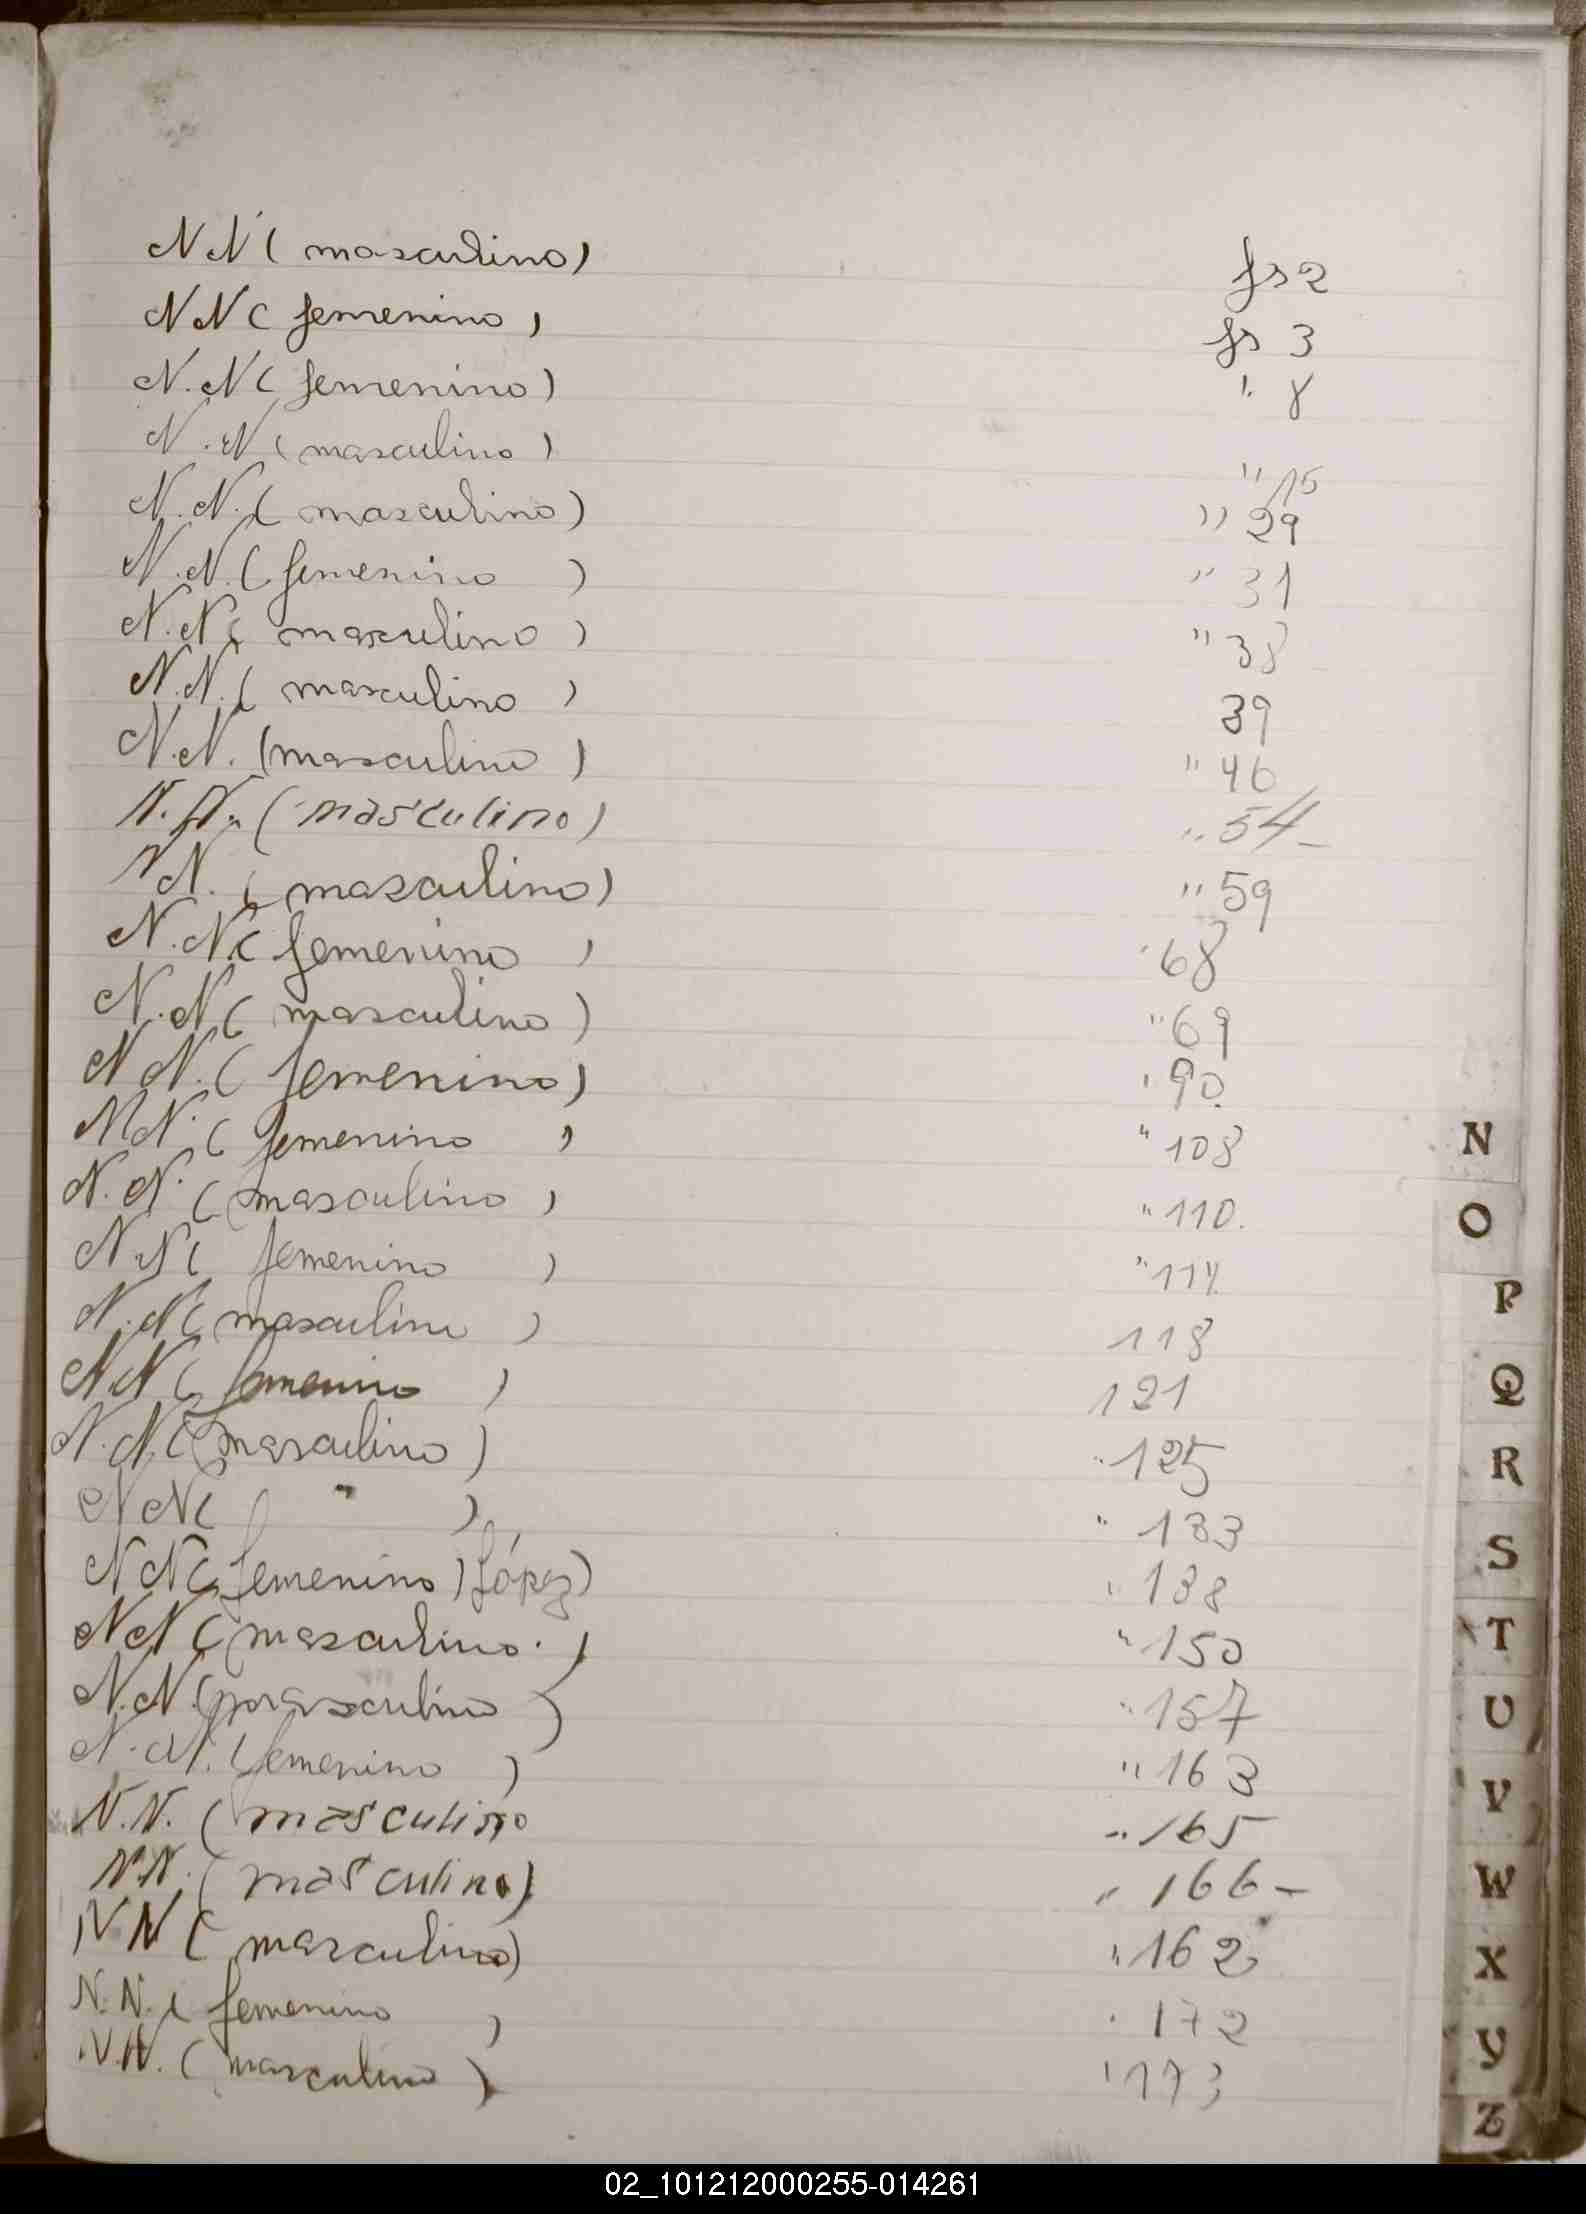 NN ( masculino ) fs 2
NN ( femenino ) fs 3
N.N ( femenino ) " 8
N.N ( masculino ) " 15
N.N. ( masculino ) " 29
N.N. ( femenino ) " 31
N.N ( masculino ) " 38
N.N. ( masculino ) 39
N.N. ( masculino ) " 46
N.N. ( masculino ) " 54-
NN. ( masculino ) " 59
N.N. ( femenino ) " 68
N.N ( masculino ) " 69
N N. ( femenino ) " 90.
NN. ( femenino ) " 108
N.N. ( masculino ) " 110.
N.N ( femenino ) "
N.N ( masculino ) 118
NN ( femenino ) 121
N.N. ( masculino ) " 125
NN ( " ) " 133
NN ( femenino ) López) " 138
NN ( masculino . ) " 150
N.N. ( masculino ) " 157
N.N. ( femenino ) " 163
N.N. ( masculino " 165
N.N. ( masculino ) " 166-
NN ( masculino ) " 162
N.N. ( femenino ) " 172
N.N. ( masculino ) " 173
N
O
P
Q
R
S
T
U
V
W
X
Y
Z
02_101212000255-014261